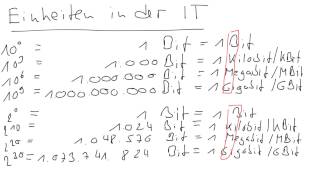 Einheiten in der IT
10⁰ = 1 Bit = 1 Bit
10³ = 1.000 Bit = 1 Kilobit/KBit
10⁶ = 1.000.000 Bit = 1 Megabit/MBit
10⁹ = 1.000.000.000 Bit = 1 Gigabit/GBit
2⁰ = 1 Bit = 1 Bit
2¹⁰ = 1.024 Bit = 1 Kilobit/KBit
2²⁰ = 1.048.576 Bit = 1 Megabit/MBit
2³⁰ = 1.073.741.824 Bit = 1 Gigabit/GBit